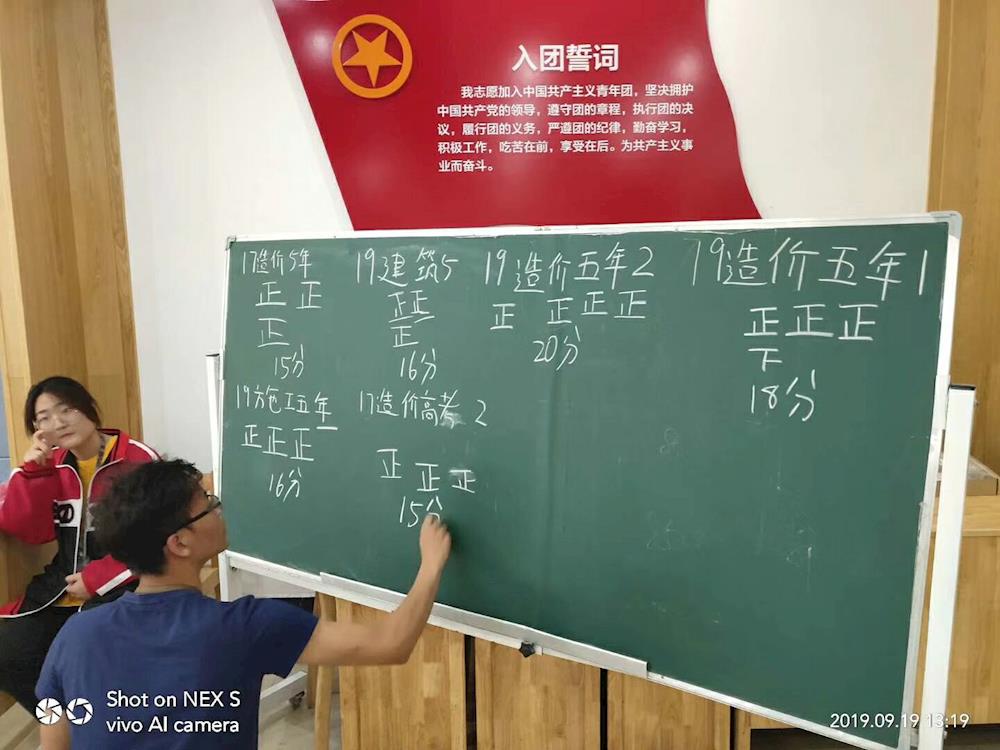 入团誓词
我志愿加入中国共产主义青年团，坚决拥护
中国共产党的领导，遵守团的章程，执行团的决
议，履行团的义务，严遵团的纪律，勤奋学习，
积极工作，吃苦在前，享受在后。为共产主义事
业而奋斗。
17造价5年
正 正
正
15分
19建筑5
正正
正
16分
19造价五年2
正 正正正
20分
19造价五年1
正正正
下
18分
19施工五年
正正正
16分
17造价高考2
正 正 正
15分
Shot on NEX S
vivo AI camera
2019.09.19 13:19